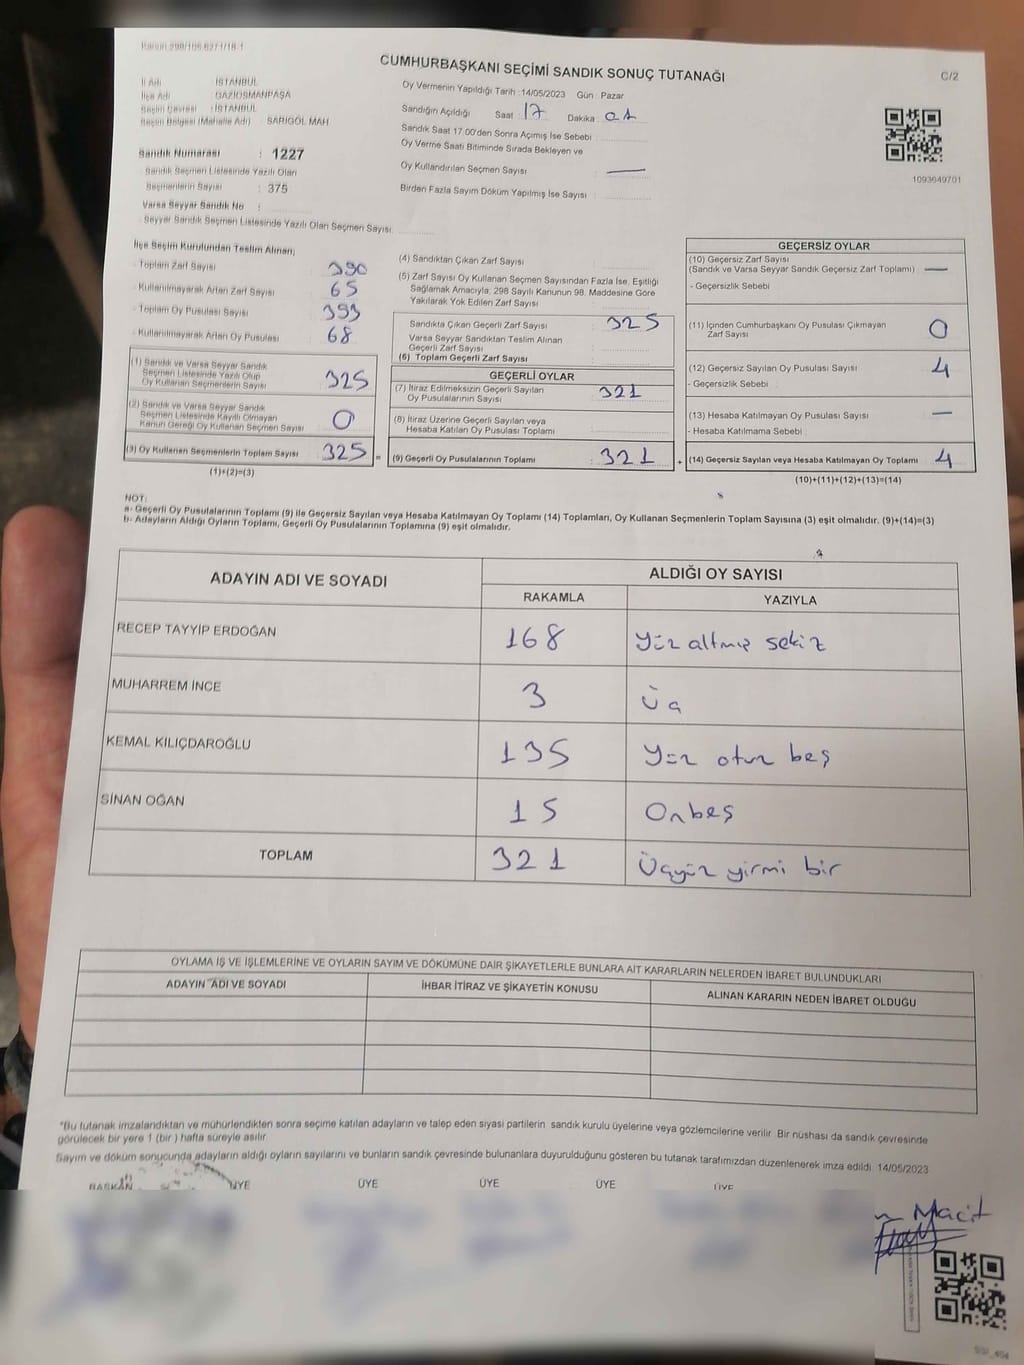 Kanun:298/105-6271/18-1
CUMHURBAŞKANI SEÇİMİ SANDIK SONUÇ TUTANAĞI
C/2
İl Adı : İSTANBUL
İlçe Adı : GAZİOSMANPAŞA
Seçim Çevresi : İSTANBUL
Seçim Bölgesi (Mahalle Adı) : SARIGÖL MAH.
Sandık Numarası : 1227
Sandık Seçmen Listesinde Yazılı Olan
Seçmenlerin Sayısı : 375
Varsa Seyyar Sandık No :
Seyyar Sandık Seçmen Listesinde Yazılı Olan Seçmen Sayısı:
Oy Vermenin Yapıldığı Tarih :14/05/2023 Gün : Pazar
Sandığın Açıldığı Saat : 17 Dakika : 01
Sandık Saat 17.00'den Sonra Açımış İse Sebebi :
Oy Verme Saati Bitiminde Sırada Bekleyen ve
Oy Kullandırılan Seçmen Sayısı : —
Birden Fazla Sayım Döküm Yapılmış İse Sayısı :
1093649701
İlçe Seçim Kurulundan Teslim Alınan;
- Toplam Zarf Sayısı : 390
- Kullanılmayarak Artan Zarf Sayısı : 65
- Toplam Oy Pusulası Sayısı : 393
- Kullanılmayarak Artan Oy Pusulası : 68
(1) Sandık ve Varsa Seyyar Sandık
Seçmen Listesinde Yazılı Olup
Oy Kullanan Seçmenlerin Sayısı : 325
(2) Sandık ve Varsa Seyyar Sandık
Seçmen Listesinde Kayıtlı Olmayan
Kanun Gereği Oy Kullanan Seçmen Sayısı : 0
(3) Oy Kullanan Seçmenlerin Toplam Sayısı : 325 =
(1)+(2)=(3)
(4) Sandıktan Çıkan Zarf Sayısı :
(5) Zarf Sayısı Oy Kullanan Seçmen Sayısından Fazla İse, Eşitliği
Sağlamak Amacıyla; 298 Sayılı Kanunun 98. Maddesine Göre
Yakılarak Yok Edilen Zarf Sayısı :
Sandıkta Çıkan Geçerli Zarf Sayısı : 325
Varsa Seyyar Sandıktan Teslim Alınan
Geçerli Zarf Sayısı :
(6) Toplam Geçerli Zarf Sayısı :
GEÇERLİ OYLAR
(7) İtiraz Edilmeksizin Geçerli Sayılan
Oy Pusulalarının Sayısı : 321
(8) İtiraz Üzerine Geçerli Sayılan veya
Hesaba Katılan Oy Pusulası Toplamı :
(9) Geçerli Oy Pusulalarının Toplamı : 321 +
GEÇERSİZ OYLAR
(10) Geçersiz Zarf Sayısı
(Sandık ve Varsa Seyyar Sandık Geçersiz Zarf Toplamı) : —
- Geçersizlik Sebebi :
(11) İçinden Cumhurbaşkanı Oy Pusulası Çıkmayan
Zarf Sayısı : 0
(12) Geçersiz Sayılan Oy Pusulası Sayısı : 4
- Geçersizlik Sebebi :
(13) Hesaba Katılmayan Oy Pusulası Sayısı : —
- Hesaba Katılmama Sebebi :
(14) Geçersiz Sayılan veya Hesaba Katılmayan Oy Toplamı : 4
(10)+(11)+(12)+(13)=(14)
NOT:
a- Geçerli Oy Pusulalarının Toplamı (9) ile Geçersiz Sayılan veya Hesaba Katılmayan Oy Toplamı (14) Toplamları, Oy Kullanan Seçmenlerin Toplam Sayısına (3) eşit olmalıdır. (9)+(14)=(3)
b- Adayların Aldığı Oyların Toplamı, Geçerli Oy Pusulalarının Toplamına (9) eşit olmalıdır.
ADAYIN ADI VE SOYADI
ALDIĞI OY SAYISI
RAKAMLA YAZIYLA
RECEP TAYYİP ERDOĞAN 168 Yüz altmış sekiz
MUHARREM İNCE 3 Üç
KEMAL KILIÇDAROĞLU 135 Yüz otuz beş
SİNAN OĞAN 15 Onbeş
TOPLAM 321 Üçyüz yirmi bir
OYLAMA İŞ VE İŞLEMLERİNE VE OYLARIN SAYIM VE DÖKÜMÜNE DAİR ŞİKAYETLERLE BUNLARA AİT KARARLARIN NELERDEN İBARET BULUNDUKLARI
ADAYIN ADI VE SOYADI İHBAR İTİRAZ VE ŞİKAYETİN KONUSU ALINAN KARARIN NEDEN İBARET OLDUĞU
*Bu tutanak imzalandıktan ve mühürlendikten sonra seçime katılan adayların ve talep eden siyasi partilerin sandık kurulu üyelerine veya gözlemcilerine verilir. Bir nüshası da sandık çevresinde
görülecek bir yere 1 (bir ) hafta süreyle asılır.
Sayım ve döküm sonucunda adayların aldığı oyların sayılarını ve bunların sandık çevresinde bulunanlara duyurulduğunu gösteren bu tutanak tarafımızdan düzenlenerek imza edildi. 14/05/2023
BAŞKAN ÜYE ÜYE ÜYE ÜYE ÜYE
Macit